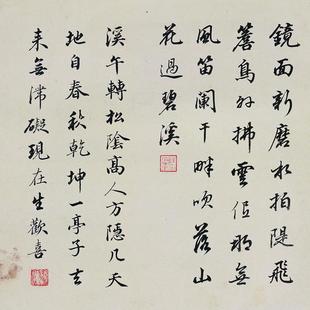 鏡面新磨水拍隄飛
簷鳥外拂雲低那無
風笛闌干畔吹落山
花過碧溪
溪午轉松陰高人方隱几天
地自春秋乾坤一亭子去
来無滯礙現在生歡喜